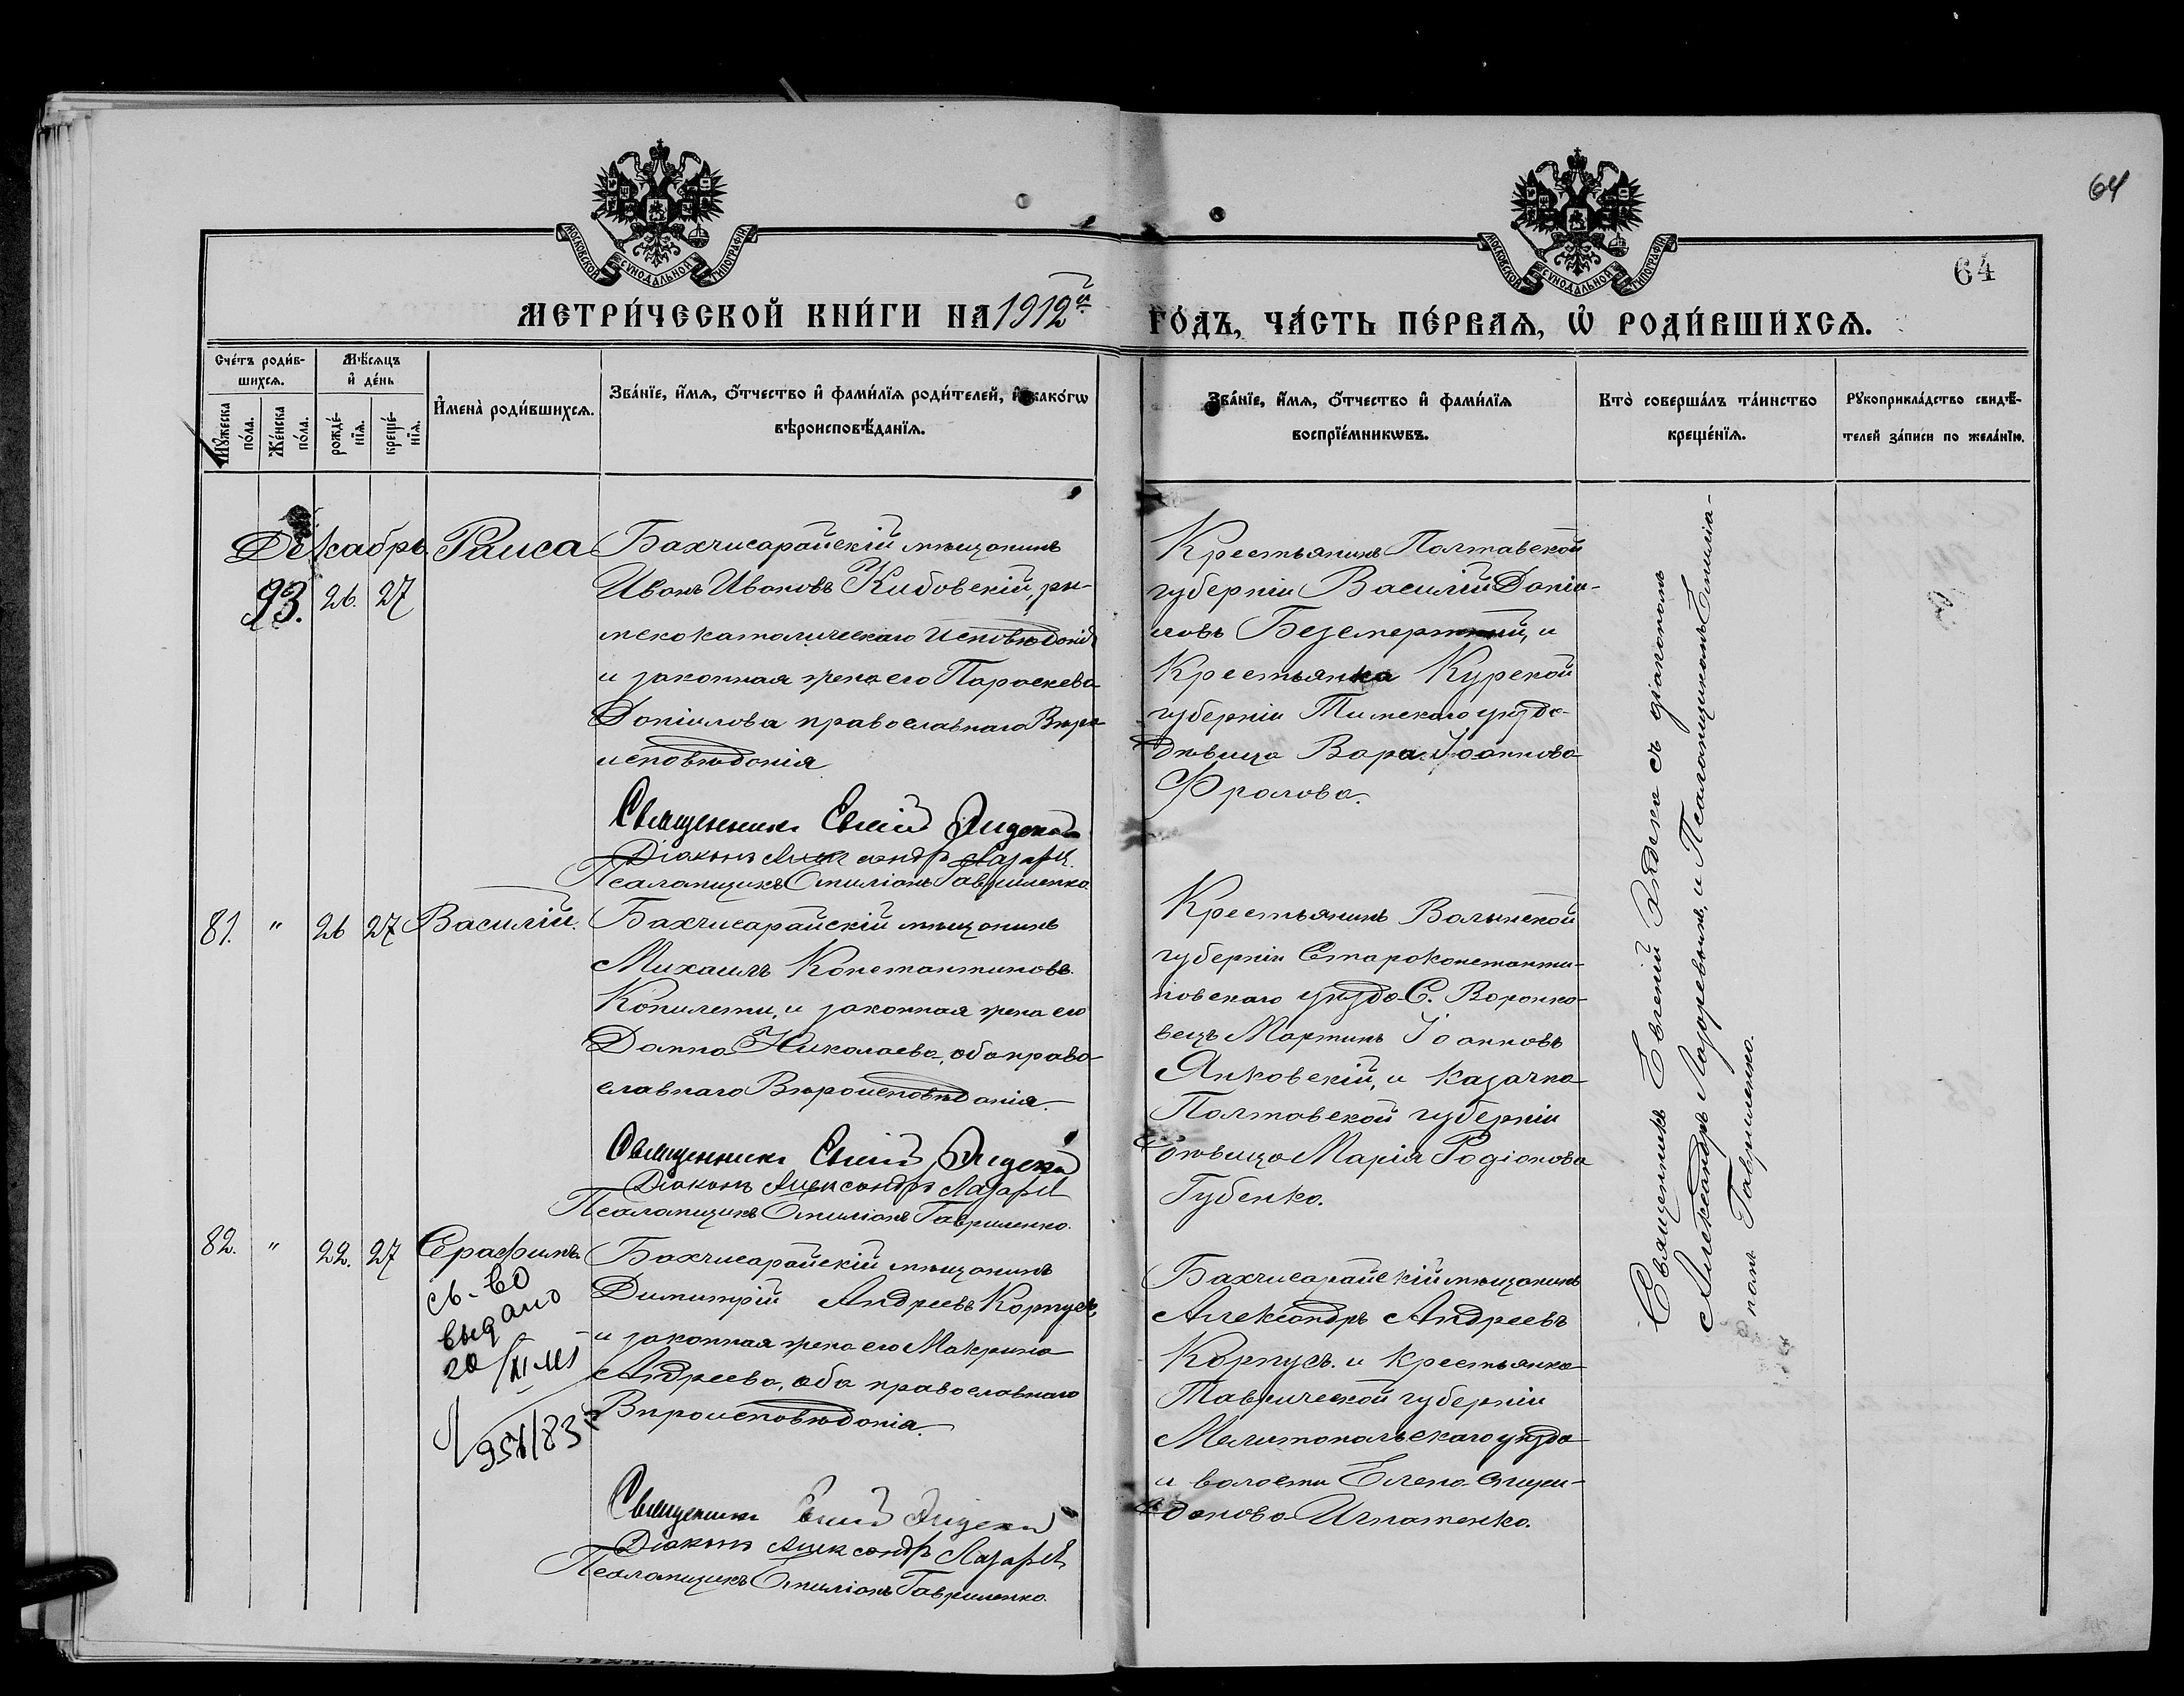 64
64
МОСКОВСКОЙ СѴНОДАЛЬНОЙ ТИПОГРАФІИ
МОСКОВСКОЙ СѴНОДАЛЬНОЙ ТИПОГРАФІИ
МЕТРИ́ЧЕСКОЙ КНИ́ГИ НА 1912й ГО́ДЪ, ЧА́СТЬ ПЕ́РВАѦ, Ѡ҆ РОДИ́ВШИХСѦ.
Сче́тъ роди́в-
шихсѧ.
Мꙋ́жеска
по́ла.
Же́нска
по́ла.
Мѣ́сѧцъ
и҆ де́нь
рожде́-
нїѧ.
креще́-
нїѧ.
И҆мена̀ роди́вшихсѧ.
Зва́нїе, и҆́мѧ, ѻ҆́тчество и҆ фами́лїѧ роди́телей, и҆ како́гѡ
вѣроисповѣ́данїѧ.
Зва́нїе, и҆́мѧ, ѻ҆́тчество и҆ фами́лїѧ
воспрїе́мникѡвъ.
Кто̀ соверша́лъ та́инство
креще́нїѧ.
Рꙋкоприкла́дство свидѣ́-
телей за́писи по жела́нїю.
Декабрь
93. 26. 27
Раиса
Бахчисарайскій мѣщанинъ
Иванъ Ивановъ Кибовскій, ри-
мскокатолическаго исповѣданія
и законная жена его Параскева
Даніилова православнаго Вѣро
исповѣданія
Священникъ Евгеній Эндека
Діаконъ Александръ Лазаревъ
Псаломщикъ Емиліанъ Гавриленко.
Крестьянинъ Полтавской
губерніи Василій Даніи-
ловъ Безсмертный, и
Крестьянка Курской
губерніи Тимскаго уѣзда
дѣвица Вара Іоаннова
Фролова.
81. " 26 27 Василій.
Бахчисарайскій мѣщанинъ
Михаилъ Константиновъ
Копилети, и законная жена его
Домна Николаева, оба право-
славнаго Вѣроисповѣданія.
Священникъ Евгеній Эндека
Діаконъ Александръ Лазаревъ
Псаломщикъ Емиліанъ Гавриленко.
Крестьянинъ Волынской
губерніи Староконстанти-
новскаго уѣзда С. Воронко-
вецъ Мартинъ Іоанновъ
Янковскій, и казачка
Полтавской губерніи
дѣвица Марія Родіонова
Губенко.
82. " 22. 27 Серафимъ
св-во
выдано
Бахчисарайскій мѣщанинъ
Димитрій Андреевъ Корпусъ,
и законная жена его Макрина
Андреева, оба православнаго
Вѣроисповѣданія.
Священникъ Евгеній Эндека
Діаконъ Александръ Лазаревъ
Псаломщикъ Емиліанъ Гавриленко.
Бахчисарайскій мѣщанинъ
Александръ Андреевъ
Корпусъ. и крестьянка
Таврической губерніи
Мелитопольскаго уѣзда
и волости Елена Спири-
донова Игнатенко.
Священникъ Евгеній Эндека съ діакономъ
Александръ Лазаревымъ, и Псаломщикомъ Емилiа-
номъ Гавриленко.